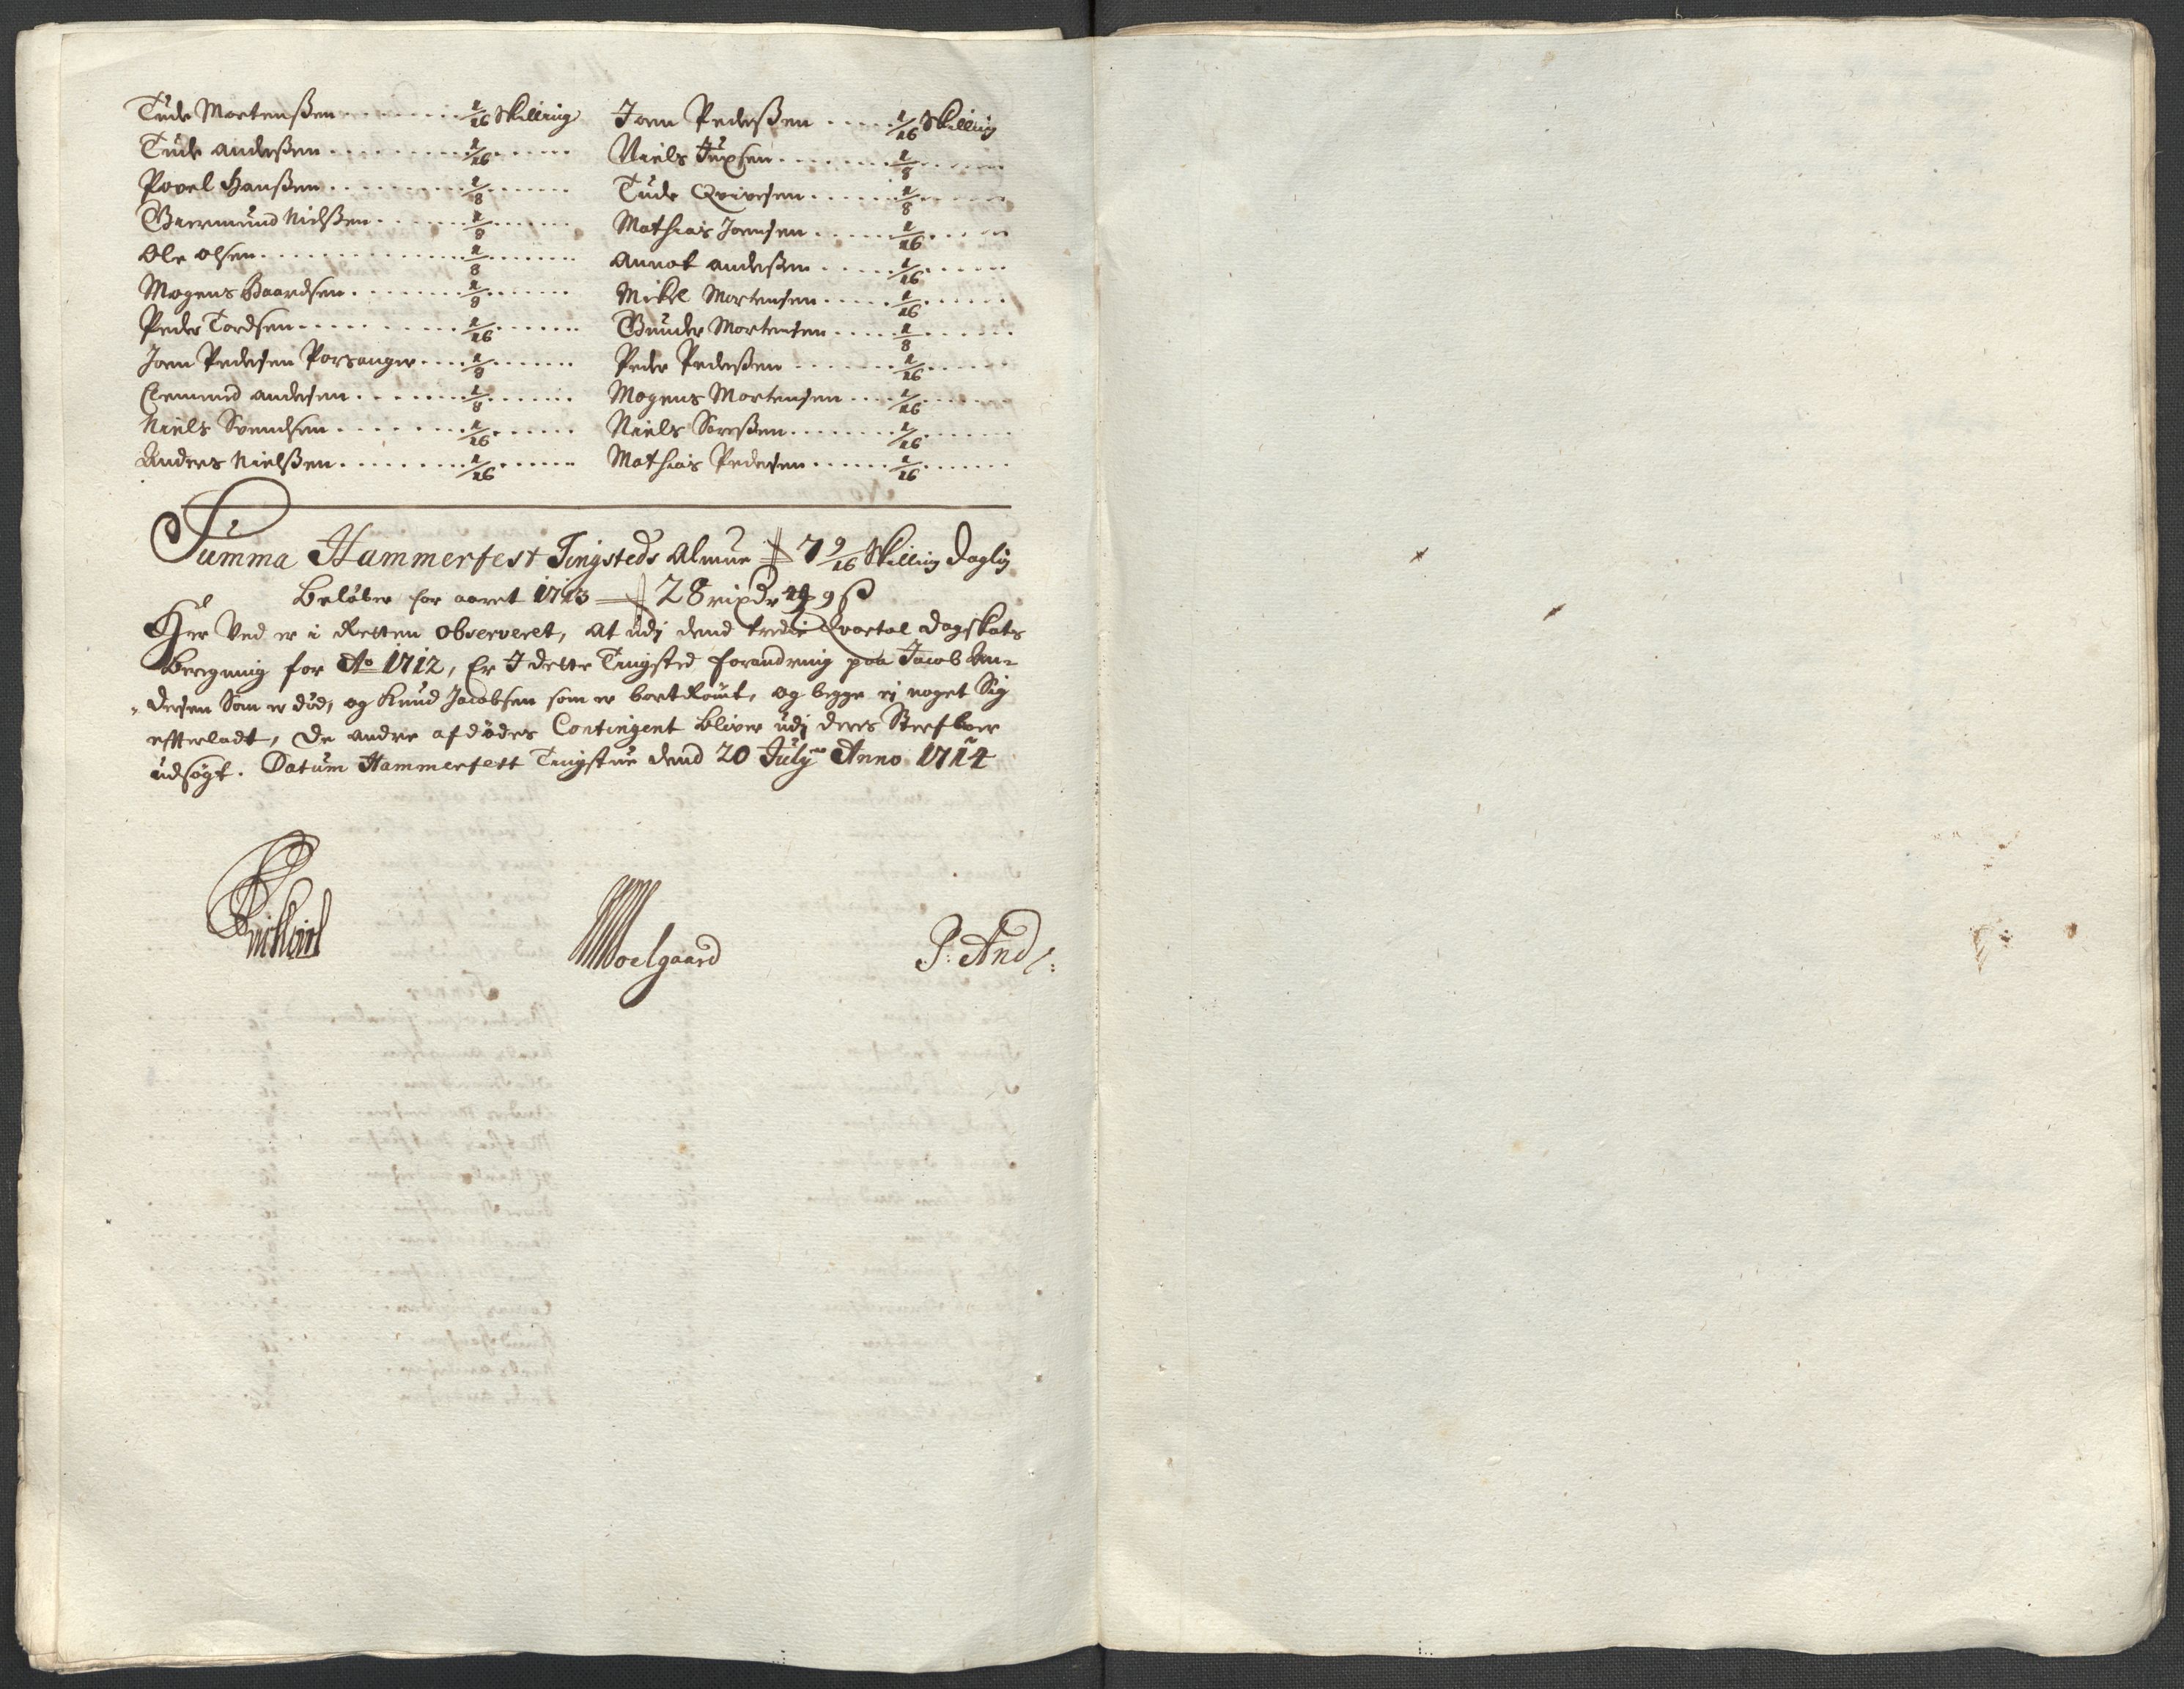 Tude Mortenßen . . . . . . . 1/16 Skilling
Tude Anderßen . . . . . . . 1/16 . . . . .
Povel Hanßen . . . . . . . 1/8 . . . . .
Guermund Nielßen . . . . . 1/8 . . . . .
Ole Olsen . . . . . . . . . 1/8 . . . . .
Mogens Baardsen . . . . . . 1/8 . . . . .
Peder Tordsen . . . . . . . 1/16 . . . . .
Joen Pedersen Porsanger . . . 1/8 . . . . .
Clemmed Andersen . . . . . . 1/8 . . . . .
Niels Svendsen . . . . . . . 1/16 . . . . .
Anders Nielßen . . . . . . . 1/16 . . . . .
Joen Pederßen . . . . . 1/16 Skilling
Niels Jupsen . . . . . . . 1/8 . . . . .
Tude Qvivesen . . . . . . 1/8 . . . . .
Mathias Joensen . . . . . 1/16 . . . . .
Amnot Anderßen . . . . . 1/16 . . . . .
Mikel Mortensen . . . . . 1/16 . . . . .
Gunder Mortensen . . . . . 1/8 . . . . .
Peder Pederßen . . . . . . 1/16 . . . . .
Mogens Mortensen . . . . 1/16 . . . . .
Niels Sarreßen . . . . . . . 1/16 . . . . .
Mathias Pedersen . . . . . . 1/16 . . . . .
Summa Hammerfest Tingsteds Almue 7 9/16 Skilling Daglig
Beløber for aaret 1713 28 rixdr 9 ß
Her Ved er i Retten observeret, at udj dend tredie Qvartal Dagskats
Beregning for Ao 1712, Er I dette Tingsted forandring paa Jacob An-
dersen Som er død, og Knud Jacobsen som er bortRømt, og begge ej noget Sig
efterladt, De andre afdødes Contingent bliver udj deres Sterfboer
udsøgt. Datum Hammerfest Tingstue dend 20 July Anno 1714
Moelgaard
P: And